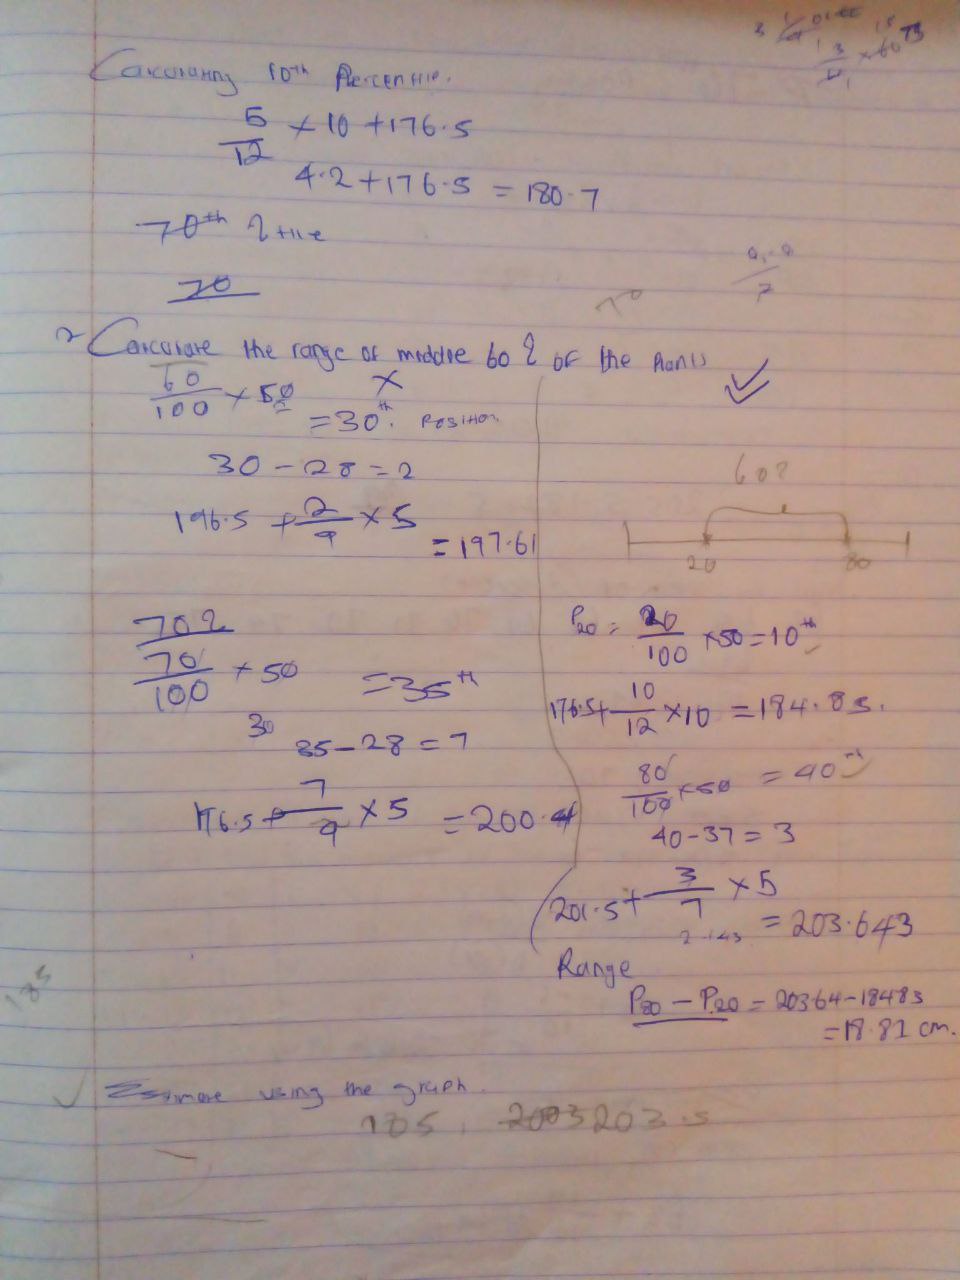 Calculating 10th Percentile.
5/12 × 10 + 176.5
4.2 + 176.5 = 180.7
70th %tile
70
Calculate the range of middle 60% of the Plants
60/100 × 50
= 30th Position
30 - 28 = 2
196.5 + 2/9 × 5
= 197.61
70%
70/100 × 50 = 35th
30
35 - 28 = 7
196.5 + 7/9 × 5 = 200.4
60%
20 80
P20 = 20/100 × 50 = 10th
176.5 + 10/12 × 10 = 184.83.
80/100 × 50 = 40th
40 - 37 = 3
201.5 + 3/7 × 5
2.143
= 203.643
Range
P80 - P20 = 203.64 - 184.83
= 18.81 cm.
185
Estimate using the graph.
185, 203.5